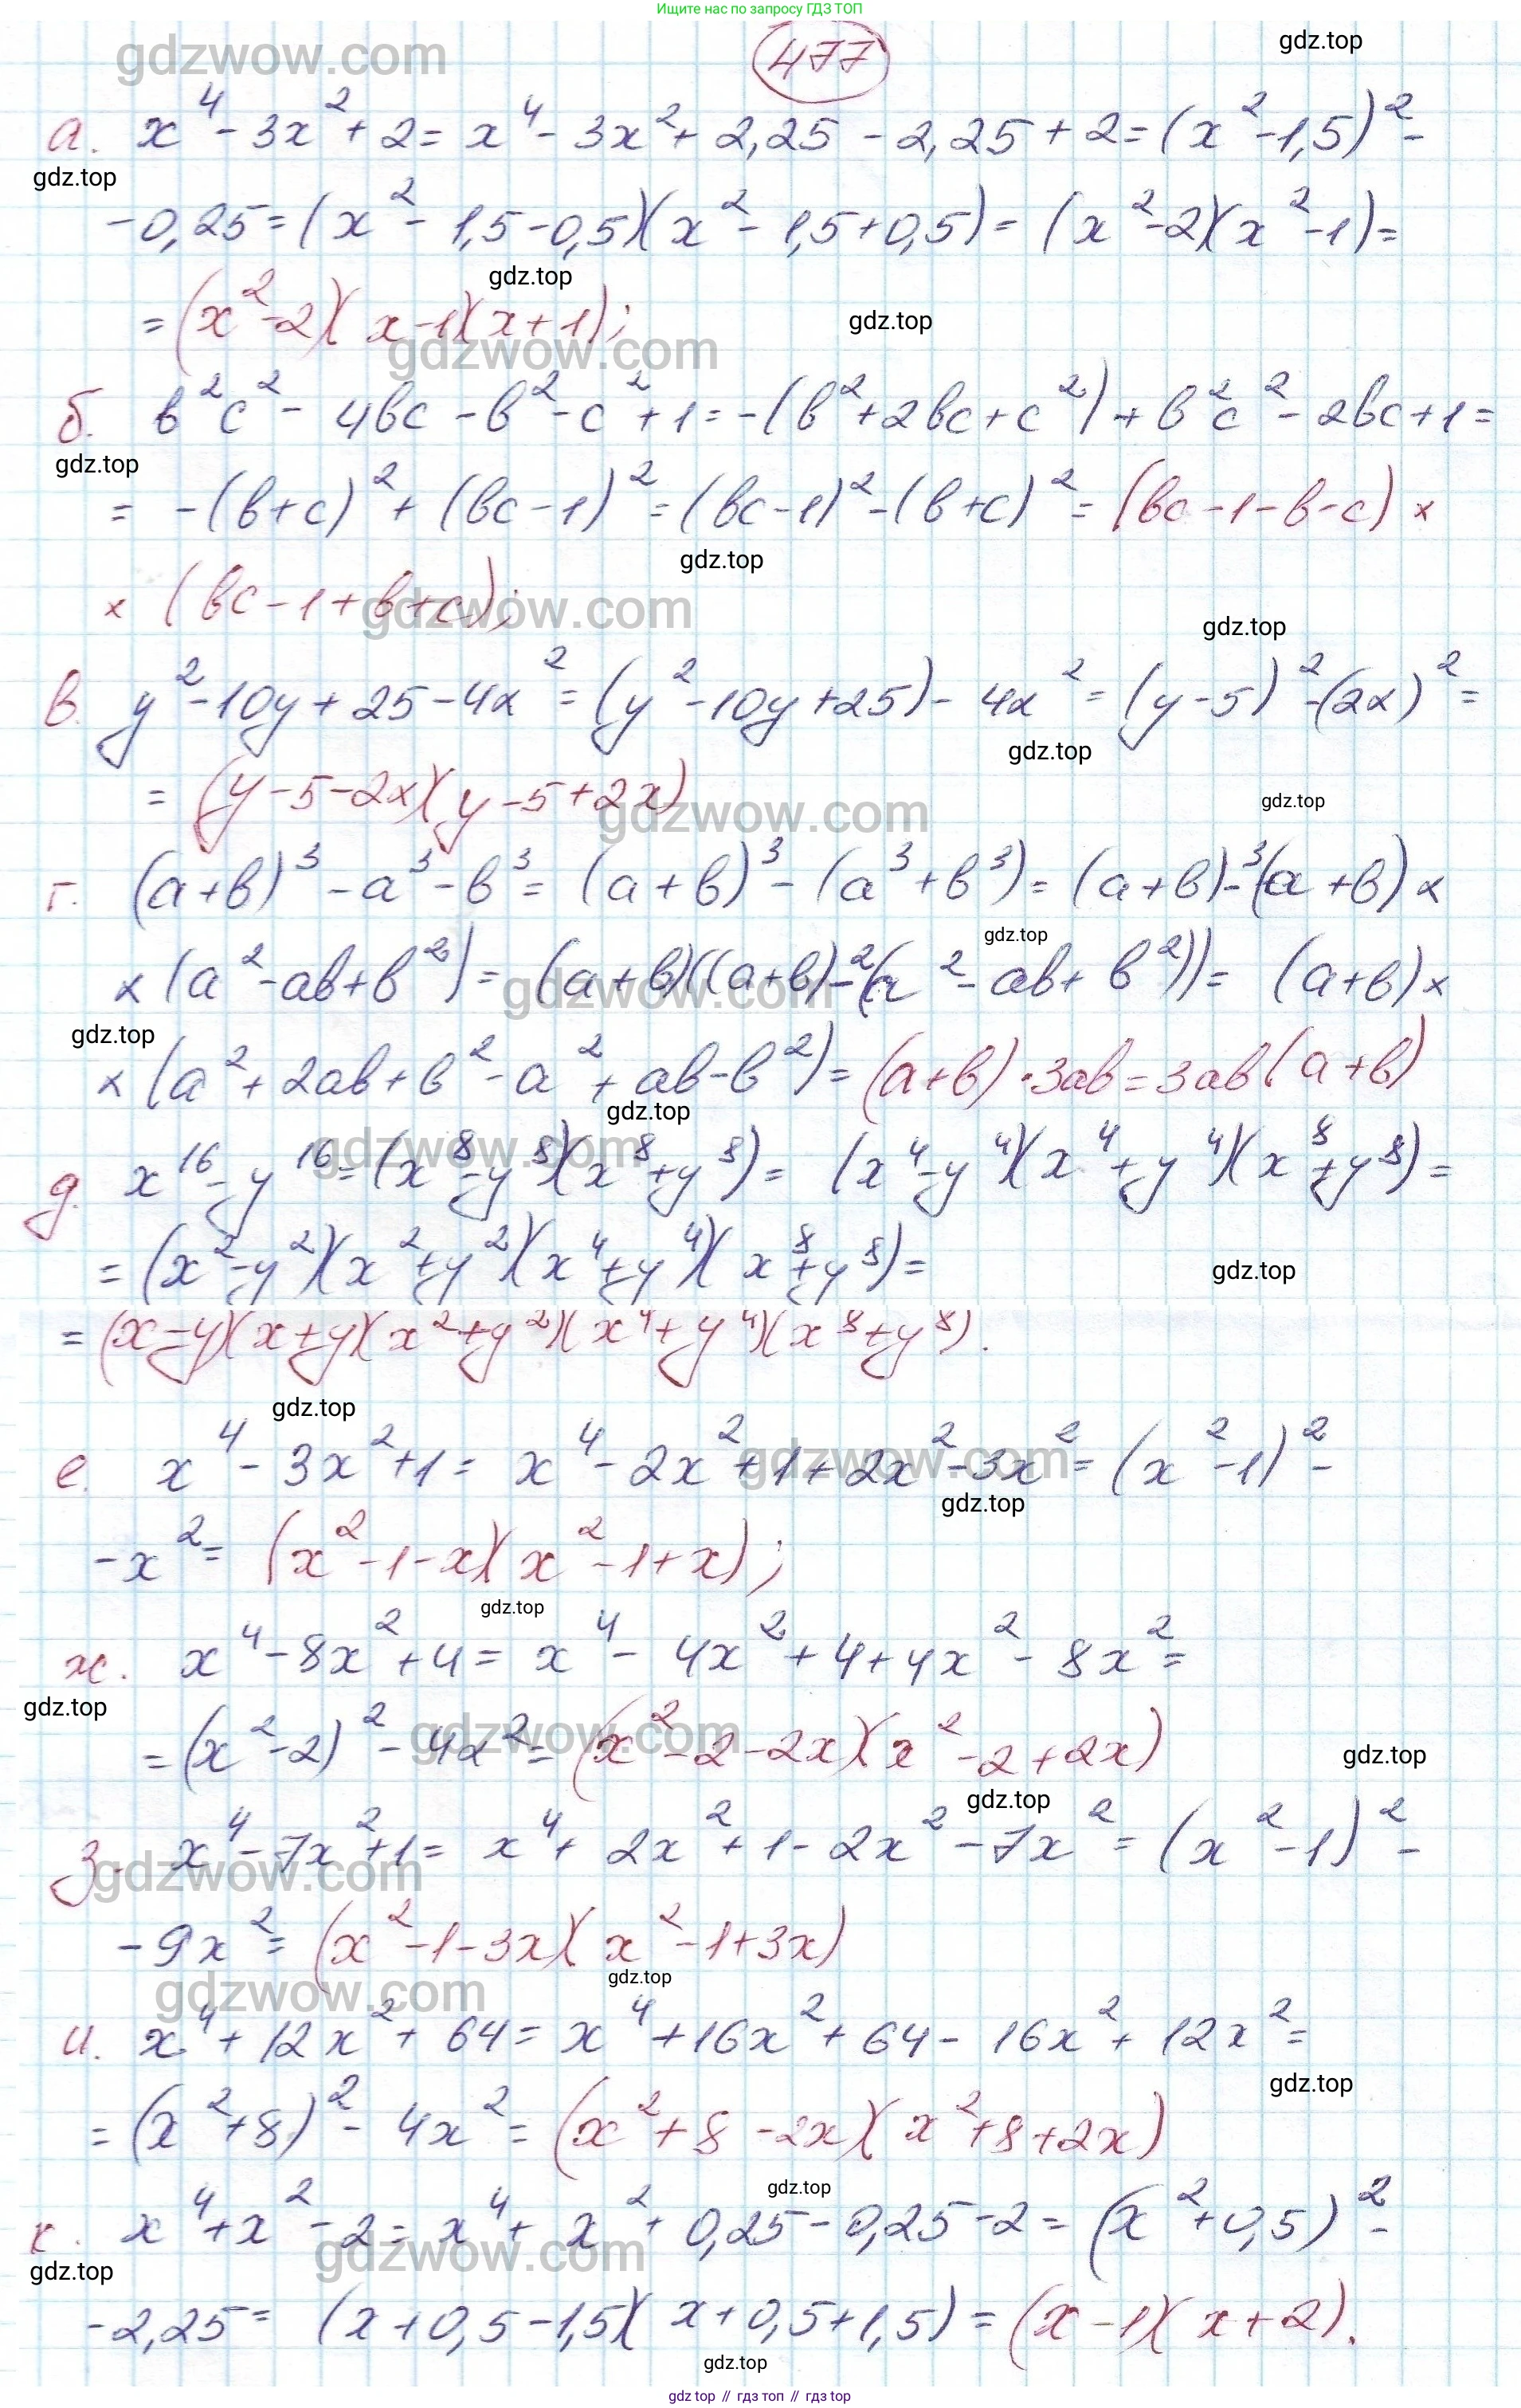 Ищите нас по запросу ГДЗ ТОП
gdzwow.com
477
gdz.top
а. x⁴ - 3x² + 2 = x⁴ - 3x² + 2,25 - 2,25 + 2 = (x² - 1,5)² -
gdz.top
- 0,25 = (x² - 1,5 - 0,5)(x² - 1,5 + 0,5) = (x² - 2)(x² - 1) =
gdz.top
= (x² - 2)(x - 1)(x + 1);
gdz.top
gdzwow.com
б. в²с² - 4вс - в² - с² + 1 = -(в² + 2вс + с²) + в²с² - 2вс + 1 =
gdz.top
= -(в + с)² + (вс - 1)² = (вс - 1)² - (в + с)² = (вс - 1 - в - с) ×
gdz.top
× (вс - 1 + в + с);
gdzwow.com
gdz.top
в. y² - 10y + 25 - 4x² = (y² - 10y + 25) - 4x² = (y - 5)² - (2x)² =
gdz.top
= (y - 5 - 2x)(y - 5 + 2x)
gdzwow.com
gdz.top
г. (а + в)³ - а³ - в³ = (а + в)³ - (а³ + в³) = (а + в)³ - (а + в) ×
gdz.top
× (а² - ав + в²) = (а + в)((а + в)² - (а² - ав + в²)) = (а + в) ×
gdzwow.com
gdz.top
× (а² + 2ав + в² - а² + ав - в²) = (а + в) · 3ав = 3ав(а + в)
gdz.top
gdzwow.com
д. x¹⁶ - y¹⁶ = (x⁸ - y⁸)(x⁸ + y⁸) = (x⁴ - y⁴)(x⁴ + y⁴)(x⁸ + y⁸) =
= (x² - y²)(x² + y²)(x⁴ + y⁴)(x⁸ + y⁸) =
gdz.top
= (x - y)(x + y)(x² + y²)(x⁴ + y⁴)(x⁸ + y⁸).
gdz.top
е. x⁴ - 3x² + 1 = x⁴ - 2x² + 1 + 2x² - 3x² = (x² - 1)² -
gdzwow.com
gdz.top
- x² = (x² - 1 - x)(x² - 1 + x);
gdz.top
ж. x⁴ - 8x² + 4 = x⁴ - 4x² + 4 + 4x² - 8x² =
gdz.top
= (x² - 2)² - 4x² = (x² - 2 - 2x)(x² - 2 + 2x)
gdzwow.com
gdz.top
gdz.top
з. x⁴ - 7x² + 1 = x⁴ + 2x² + 1 - 2x² - 7x² = (x² - 1)² -
gdzwow.com
- 9x² = (x² - 1 - 3x)(x² - 1 + 3x)
gdz.top
gdzwow.com
и. x⁴ + 12x² + 64 = x⁴ + 16x² + 64 - 16x² + 12x² =
gdz.top
= (x² + 8)² - 4x² = (x² + 8 - 2x)(x² + 8 + 2x)
gdz.top
к. x⁴ + x² - 2 = x⁴ + x² + 0,25 - 0,25 - 2 = (x² + 0,5)² -
gdzwow.com
gdz.top
- 2,25 = (x + 0,5 - 1,5)(x + 0,5 + 1,5) = (x - 1)(x + 2).
gdz.top
gdz top // гдз топ // gdz top